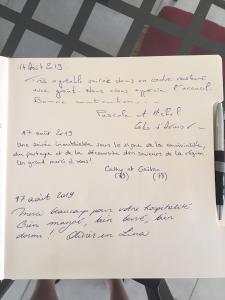 14 Août 2019
Très agréable soirée dans un cadre restauré
avec goût. Nous avons apprécié l'accueil.
Bonne continuation...
Pascale et
17 août 2019
Une soirée inoubliable sous le signe de la convivialité,
du partage et de la découverte des saveurs de la région.
Un grand merci à vous!
Cathy et Gaëtan
17 août 2019
Merci beaucoup pour votre hospitalité.
Bien mangé, bien buvé, bien
dormi! Oliver en Lina